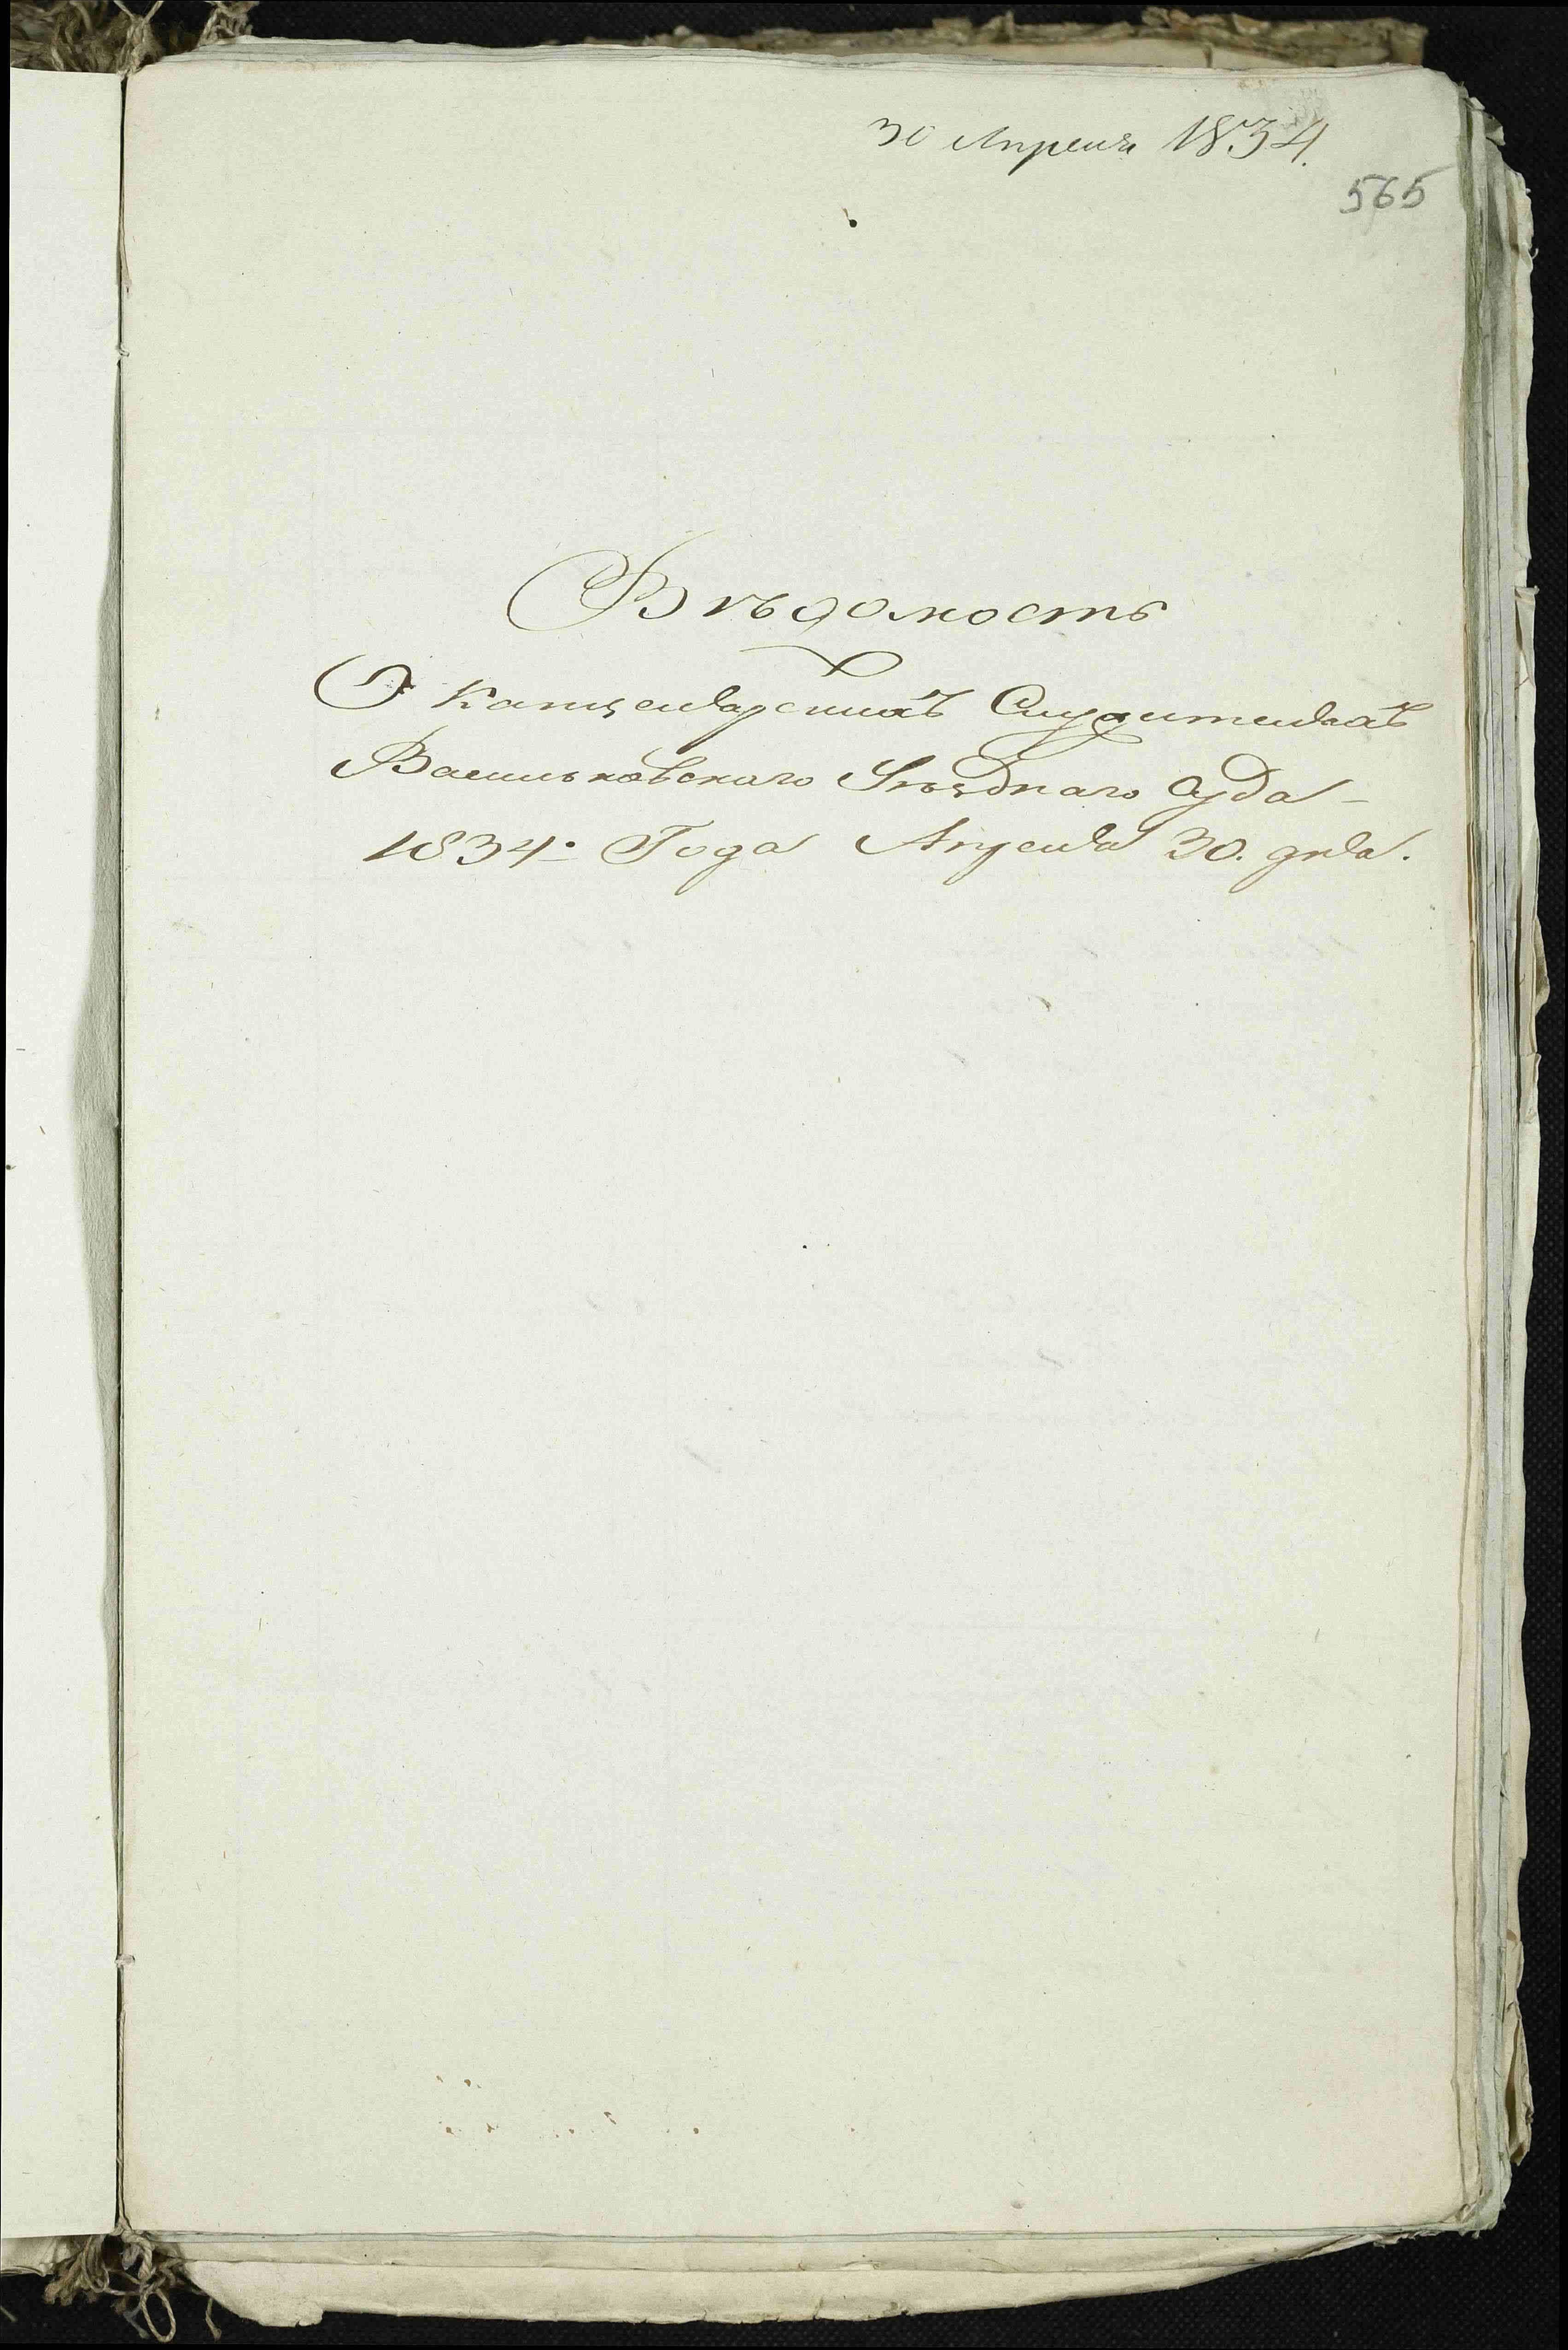 30 Апреля 1834.
565
Вѣдомость
О Канцелярскихъ Служителяхъ
Васильковскаго Уѣзднаго Суда -
1834. Года Апреля 30. дня.